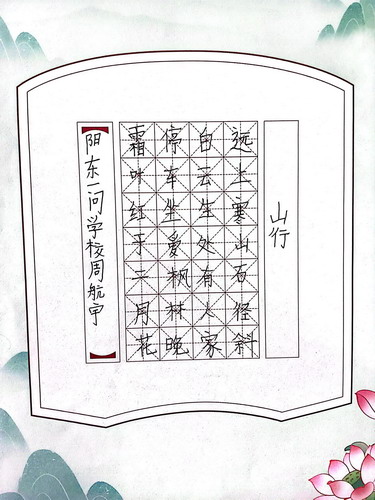 山行
远上寒山石径斜
白云生处有人家
停车坐爱枫林晚
霜叶红于二月花
阳东一问学校周航